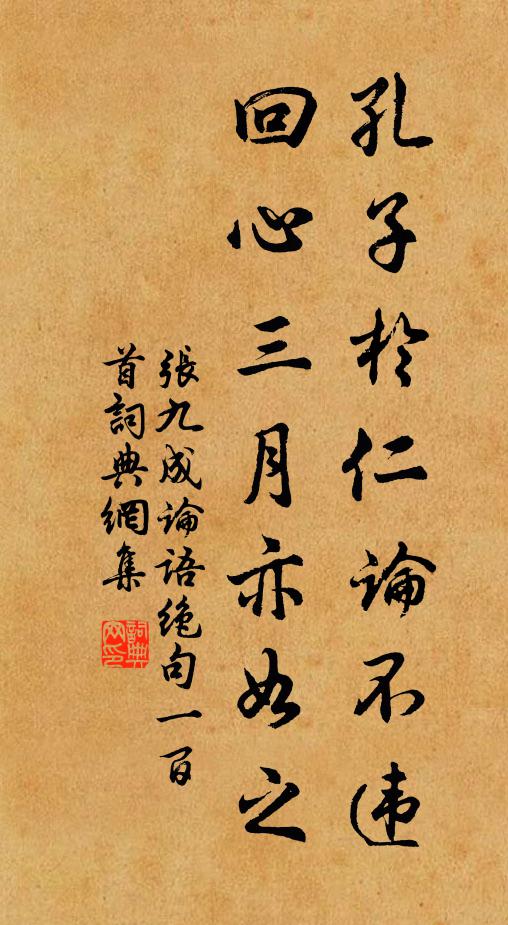 孔子於仁論不違
回心三月亦如之
張九成論語絶句一百
首詞典網集
詞典
网印